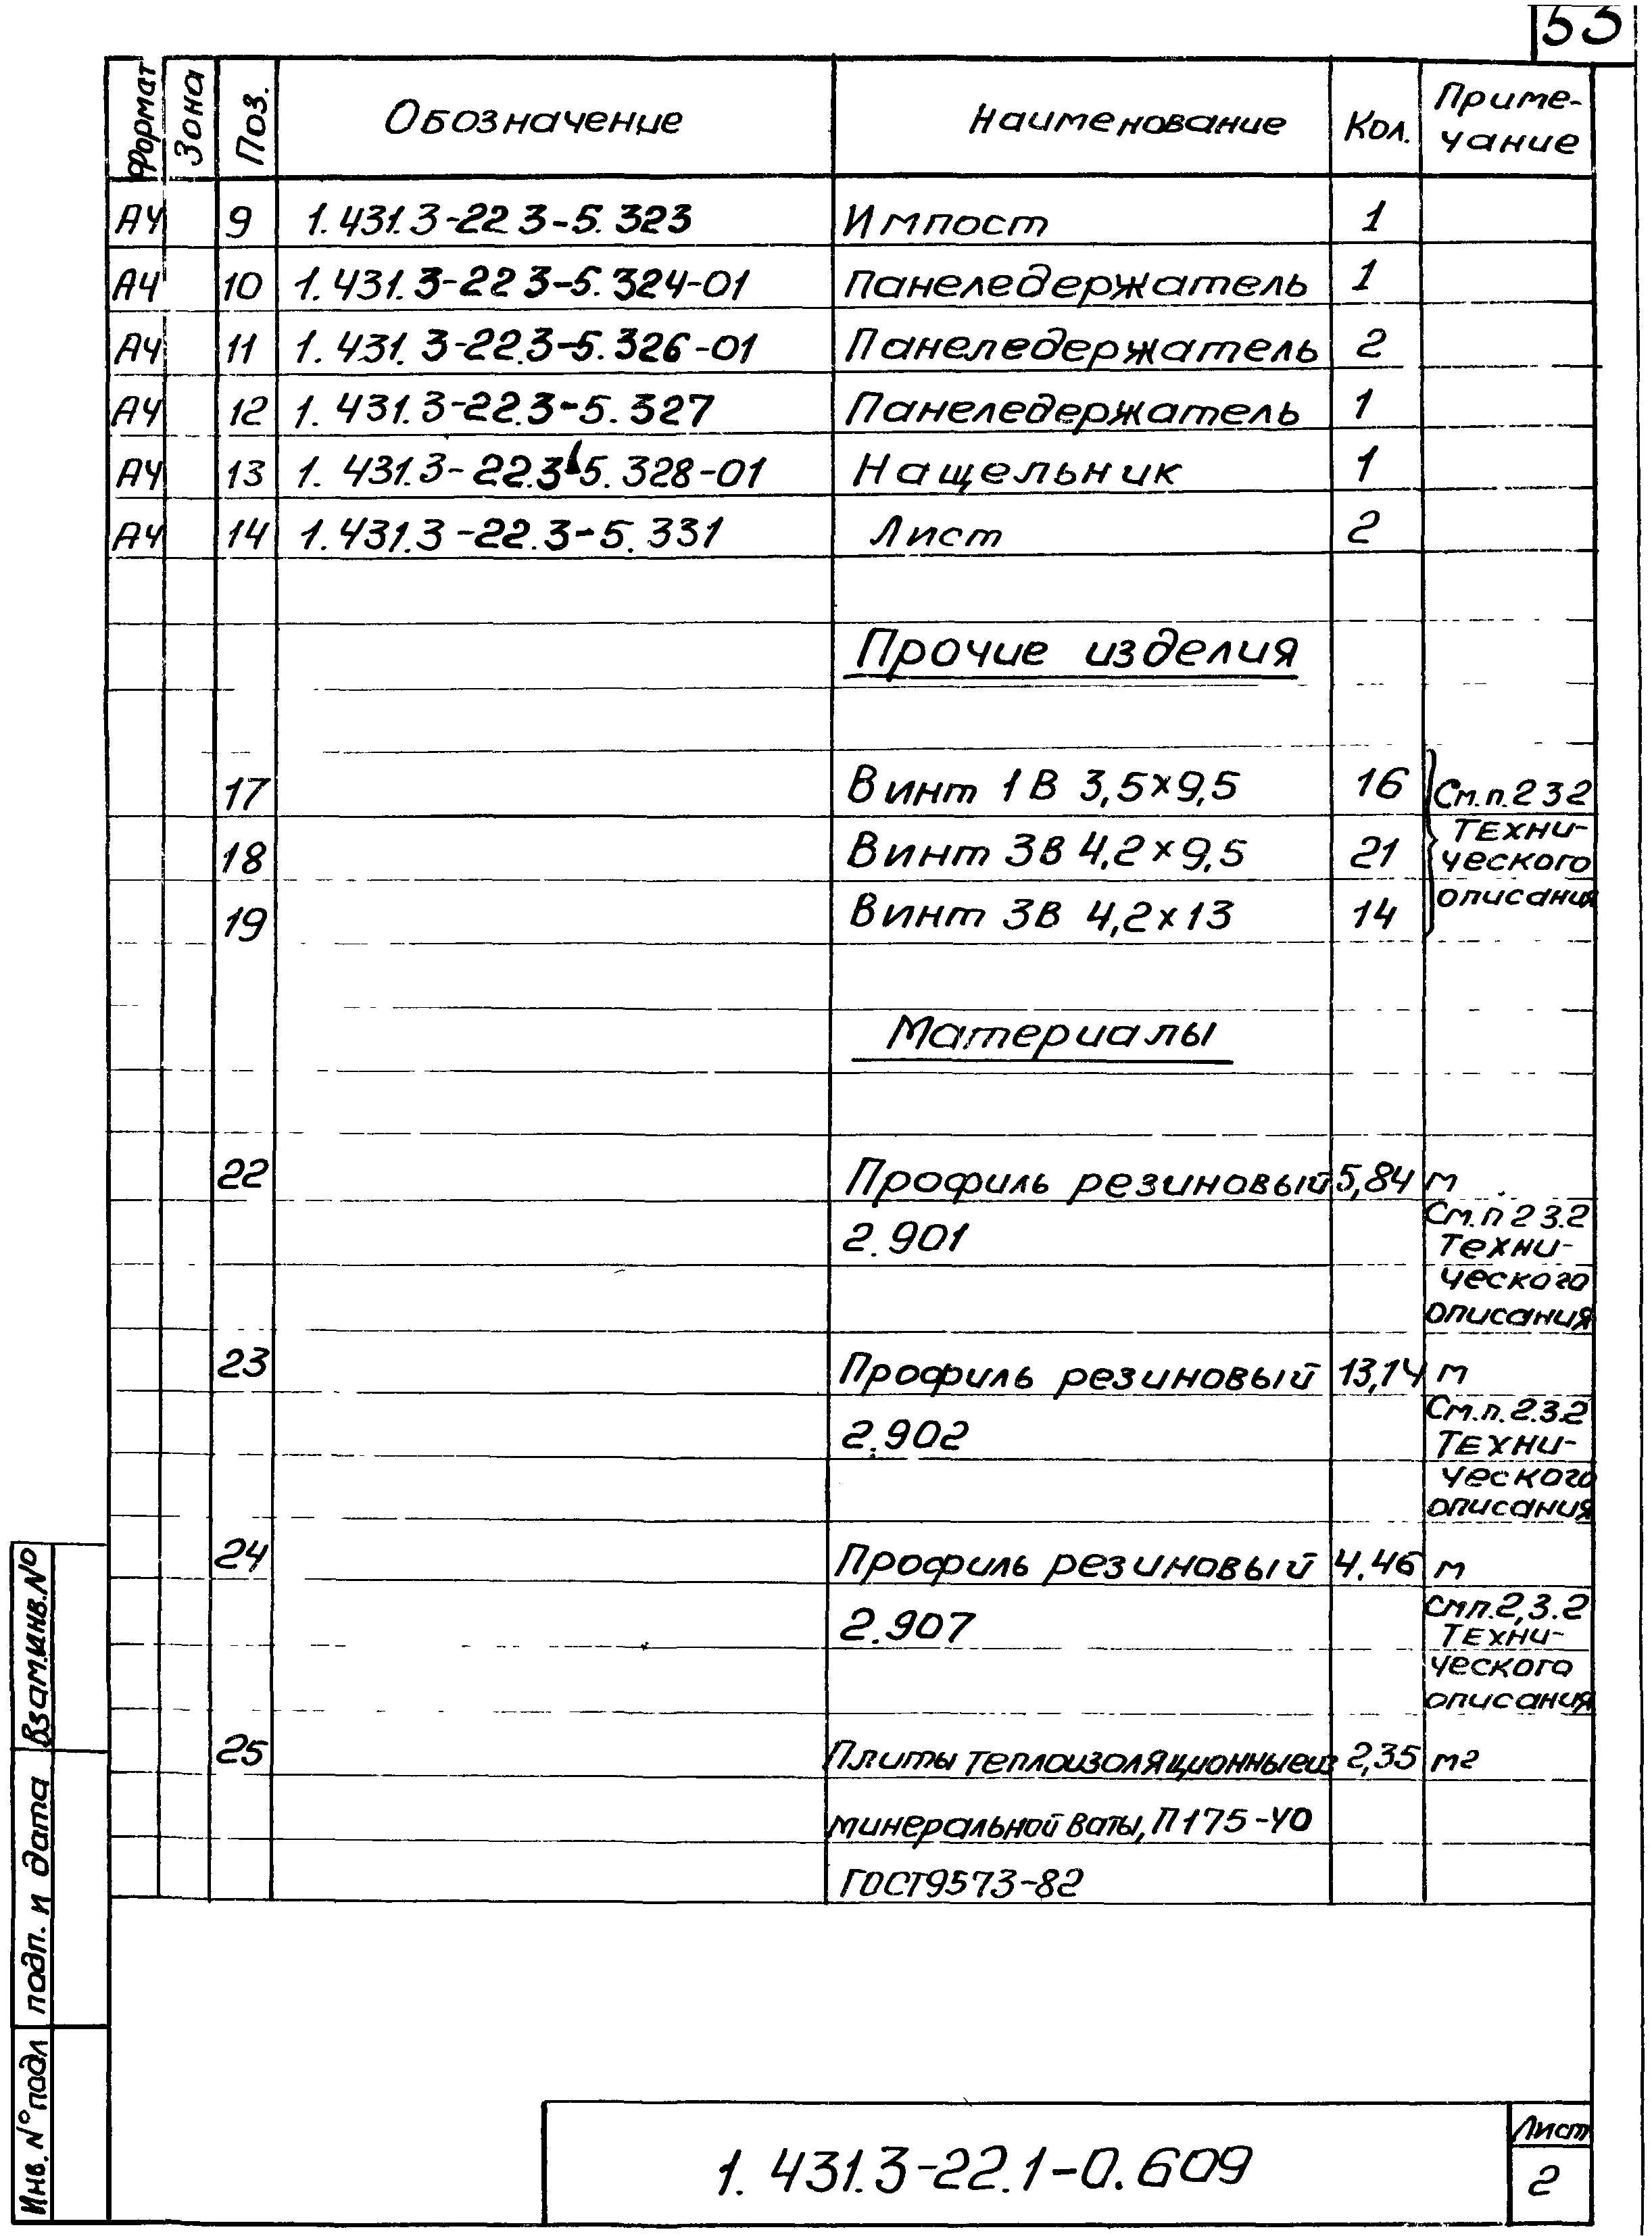 53
Формат Зона Поз. Обозначение Наименование Кол. Приме-
чание
А4 9 1.431.3-22 3-5.323 Импост 1
А4 10 1.431.3-22 3-5.324-01 Панеледержатель 1
А4 11 1.431.3-22.3-5.326-01 Панеледержатель 2
А4 12 1.431.3-22.3-5.327 Панеледержатель 1
А4 13 1.431.3-22.3-5.328-01 Нащельник 1
А4 14 1.431.3-22.3-5.331 Лист 2
Прочие изделия
17 Винт 1В 3,5×9,5 16 См.п.2 3 2
техни-
18 Винт 3В 4,2×9,5 21 ческого
описания
19 Винт 3В 4,2×13 14
Материалы
22 Профиль резиновый 5,84 м
См.п 2 3.2
2.901 техни-
ческого
описания
23 Профиль резиновый 13,14 м
См.п.2.3.2
2.902 техни-
ческого
описания
24 Профиль резиновый 4.46 м
См п.2,3.2
2.907 техни-
ческого
описания
25 Плиты теплоизоляционные из 2,35 м2
минеральной ваты, П175-ЧО
ГОСТ9573-82
Взам.инв.№
подп. и дата
Инв. № подл
1.431.3-22.1-0.609
Лист
2